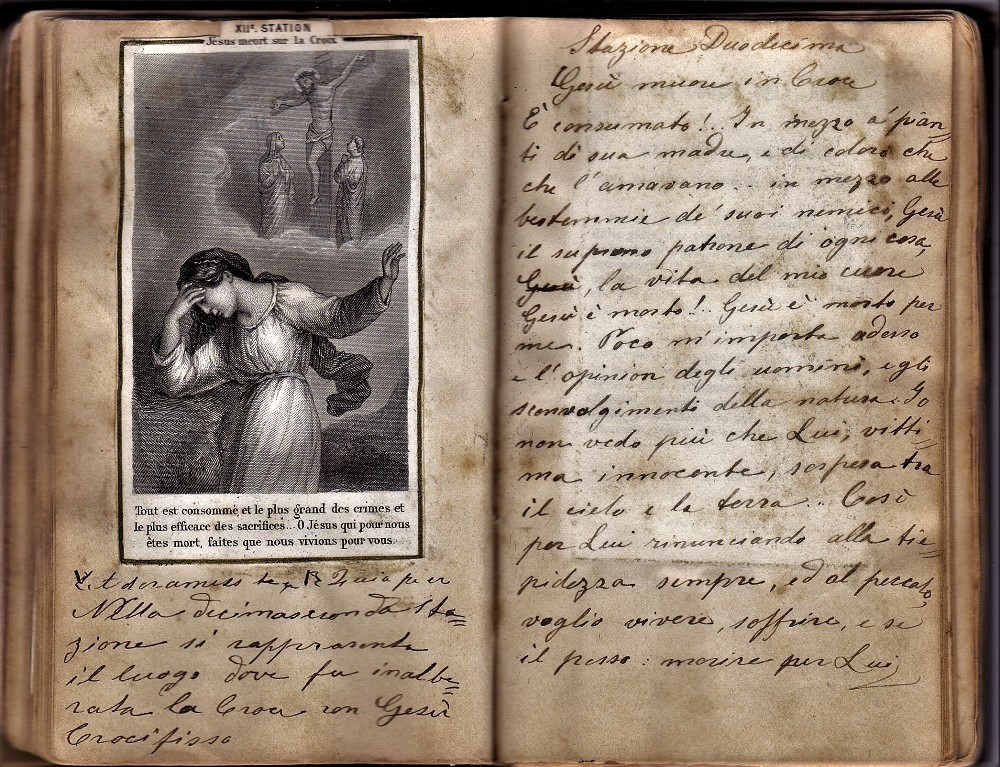 XIIe. STATION
Jésus meurt sur la Croix
Tout est consommé, et le plus grand des crimes et
le plus efficace des sacrifices... O Jésus qui pour nous
êtes mort, faites que nous vivions pour vous.
V. Adoramus te, R Quia per
Nella decimaseconda Sta=
zione si rappresenta
il luogo dove fu inalbe=
rata la Croce con Gesù
Crocifisso
Stazione Duodecima
Gesù muore in Croce
È consumato!.. In mezzo a' pian=
ti di sua madre, e di coloro che
che l'amavano.. in mezzo alle
bestemmie de' suoi nemici, Gesù
il supremo patrone di ogni cosa,
Gesù, la vita del mio cuore
Gesù è morto!.. Gesù è morto per
me. Poco m'importa adesso
e l'opinion degli uomini, e gli
sconvolgimenti della natura. Io
non vedo più che Lui, vitti=
ma innocente, sospesa tra
il cielo e la terra.. Così
per Lui rinunciando alla tie=
pidezza sempre, ed al peccato,
voglio vivere, soffrire, e se
il posso: morire per Lui